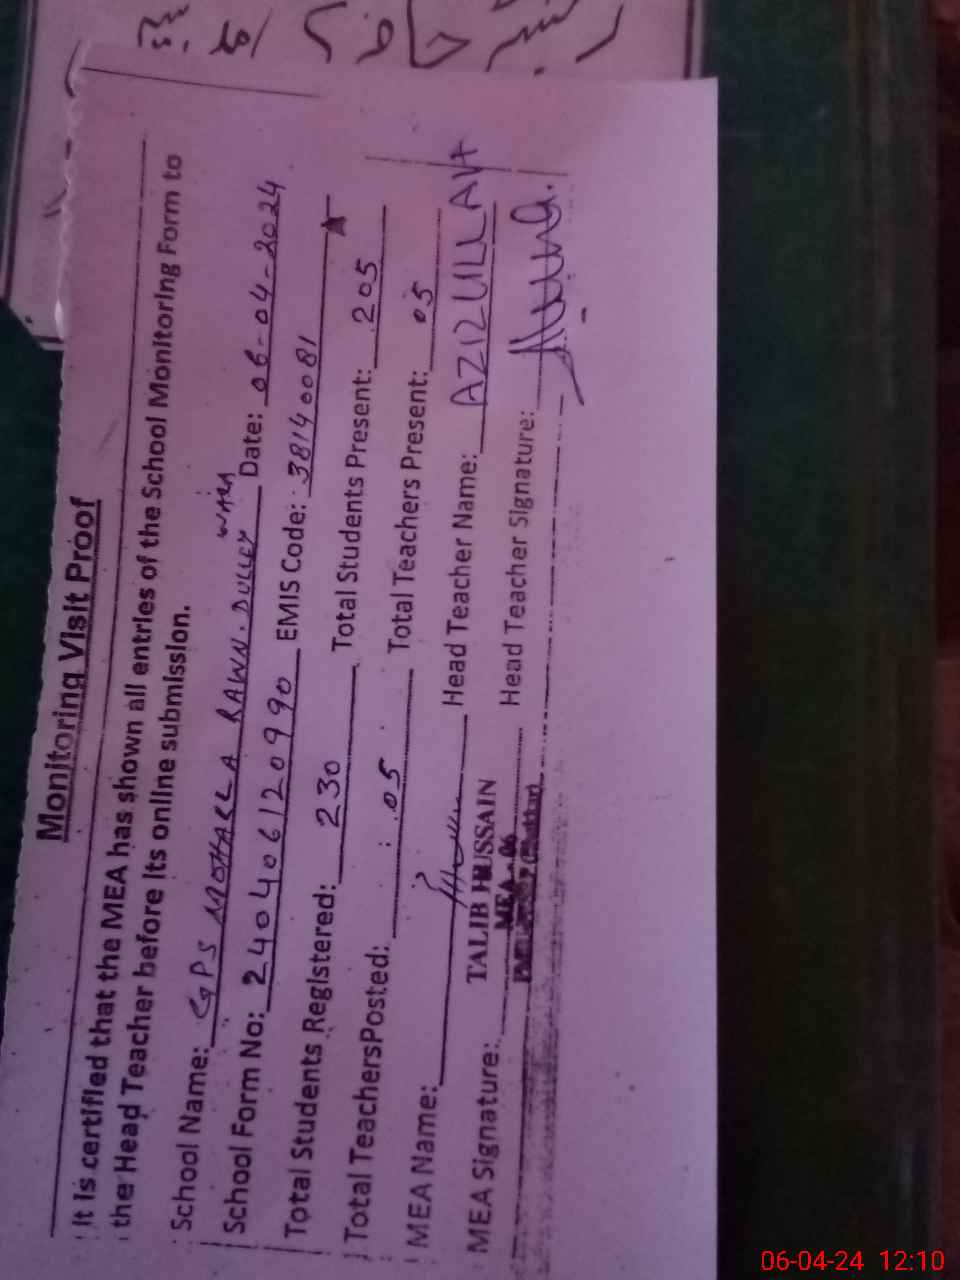 Monitoring Visit Proof
It is certified that the MEA has shown all entries of the School Monitoring Form to
the Head Teacher before its online submission.
School Name: GPS MOHALLA RAWN. DULLEY WARA Date: 06-04-2024
School Form No: 240406120990 EMIS Code: 38140081
Total Students Registered: 230 Total Students Present: 205
Total TeachersPosted: 05 Total Teachers Present: 05
MEA Name: Head Teacher Name: AZIZULLAH
TALIB HUSSAIN
MEA - 06
MEA Signature: Head Teacher Signature:
06-04-24 12:10